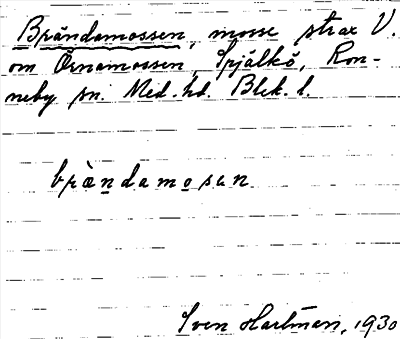 Brändamossen, mosse strax V.
om Örnamossen, Spjälkö, Ron-
neby sn. Med. hd. Blek. l.
brä̀ndamosen.
Sven Hartman, 1930